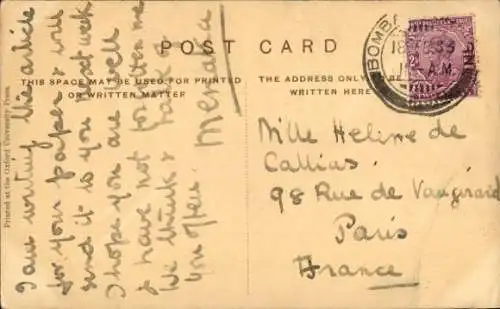 POST CARD
THIS SPACE MAY BE USED FOR PRINTED
OR WRITTEN MATTER
THE ADDRESS ONLY
WRITTEN HERE
Printed at the Oxford University Press.
I am writing the article
for your paper & will
send it to you next week
I hope you are well
& have not forgotten me
We think & talk of
you often.
BOMBA
18
33
A.M.
Mlle Helene de
Callias.
98 Rue de Vaugirard
Paris
France